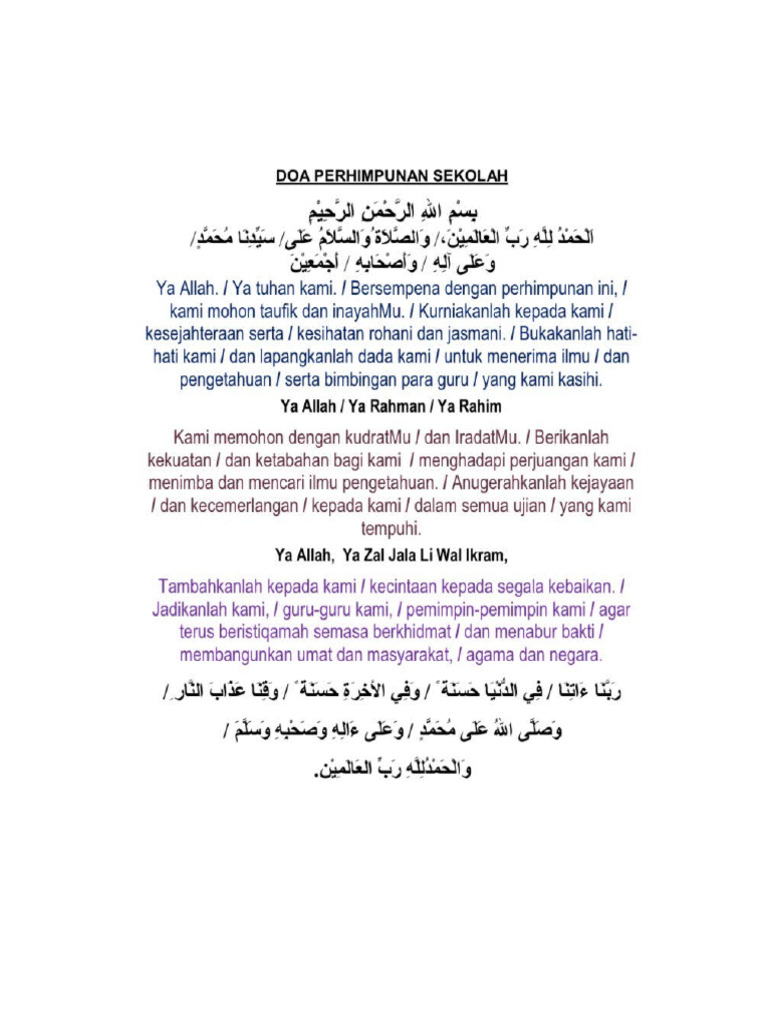 DOA PERHIMPUNAN SEKOLAH
بِسْمِ اللهِ الرَّحْمَنِ الرَّحِيْمِ
اَلْحَمْدُ لِلَّهِ رَبِّ الْعَالَمِيْنَ،/ وَالصَّلاَةُ وَالسَّلاَمُ عَلَى/ سَيِّدِنَا مُحَمَّدٍ/
وَعَلَى آلِهِ / وَأَصْحَابِهِ / أَجْمَعِيْنَ
Ya Allah. / Ya tuhan kami. / Bersempena dengan perhimpunan ini, /
kami mohon taufik dan inayahMu. / Kurniakanlah kepada kami /
kesejahteraan serta / kesihatan rohani dan jasmani. / Bukakanlah hati-
hati kami / dan lapangkanlah dada kami / untuk menerima ilmu / dan
pengetahuan / serta bimbingan para guru / yang kami kasihi.
Ya Allah / Ya Rahman / Ya Rahim
Kami memohon dengan kudratMu / dan IradatMu. / Berikanlah
kekuatan / dan ketabahan bagi kami / menghadapi perjuangan kami /
menimba dan mencari ilmu pengetahuan. / Anugerahkanlah kejayaan
/ dan kecemerlangan / kepada kami / dalam semua ujian / yang kami
tempuhi.
Ya Allah, Ya Zal Jala Li Wal Ikram,
Tambahkanlah kepada kami / kecintaan kepada segala kebaikan. /
Jadikanlah kami, / guru-guru kami, / pemimpin-pemimpin kami / agar
terus beristiqamah semasa berkhidmat / dan menabur bakti /
membangunkan umat dan masyarakat, / agama dan negara.
رَبَّنَا ءَاتِنَا / فِي الدُّنْيَا حَسَنَة ً / وَفِي الأَخِرَةِ حَسَنَة ً / وَقِنَا عَذَابَ النَّار ِ /
وَصَلَّى اللهُ عَلَى مُحَمَّدٍ / وَعَلَى ءَالِهِ وَصَحْبِهِ وَسَلَّمَ /
وَالْحَمْدُلِلَّهِ رَبِّ العَالَمِيْن.